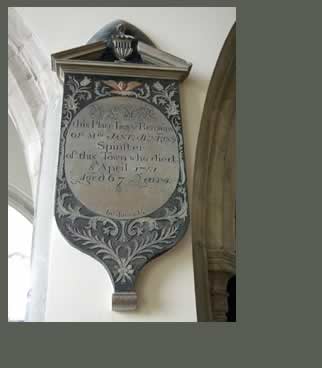 this Place lye ye Remains
OF Mrs JANE
Spinster
of this Town who died
8 April
Aged 67 Years